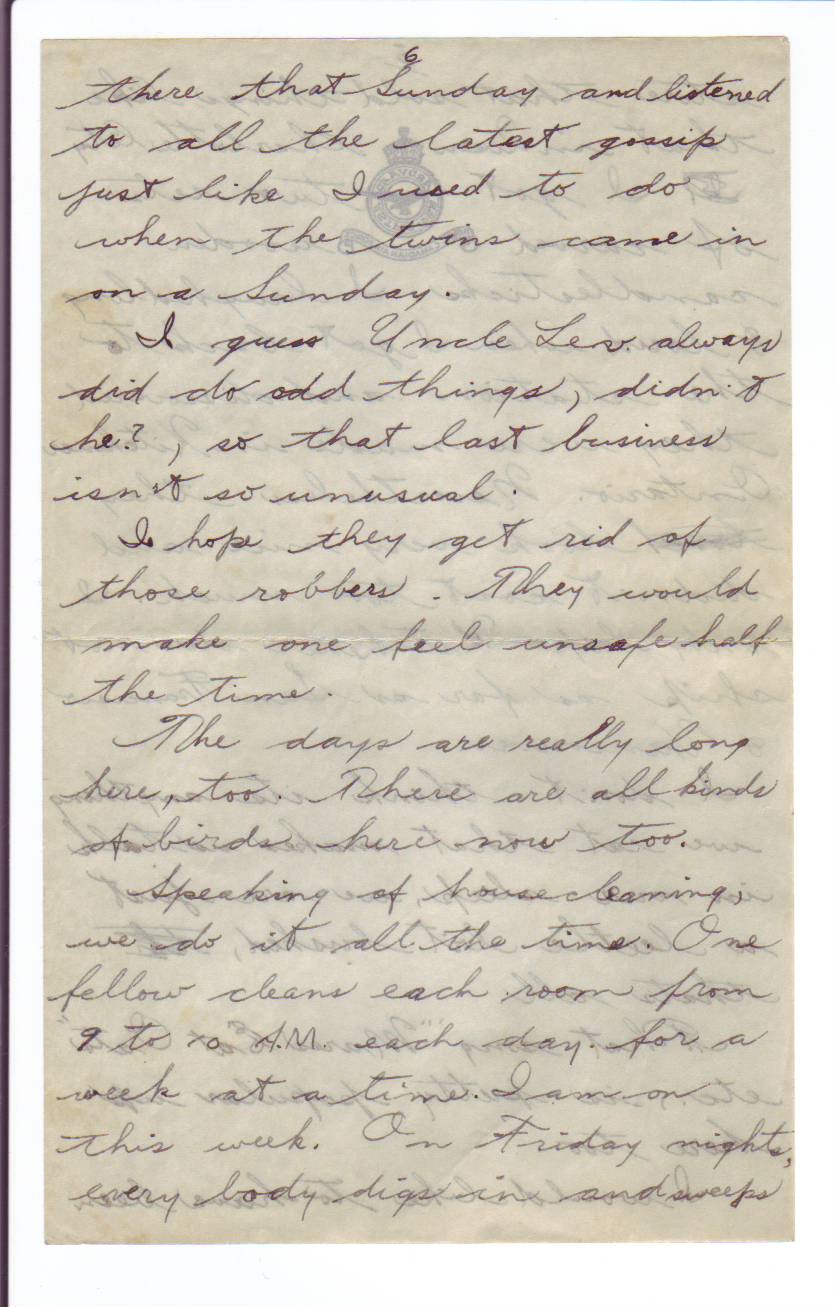 6
there that Sunday and listened
to all the latest gossip
just like I used to do
when the twins came in
on a Sunday.
I guess Uncle Les. always
did do odd things, didn't
he?, so that last business
isn't so unusual.
I hope they get rid of
those robbers. They would
make one feel unsafe half
the time.
The days are really long
here, too. There are all kinds
of birds here now too.
Speaking of housecleaning,
we do it all the time. One
fellow cleans each room from
9 to 10 A.M. each day. for a
week at a time. I am on
this week. On Friday nights,
every body digs in and sweeps